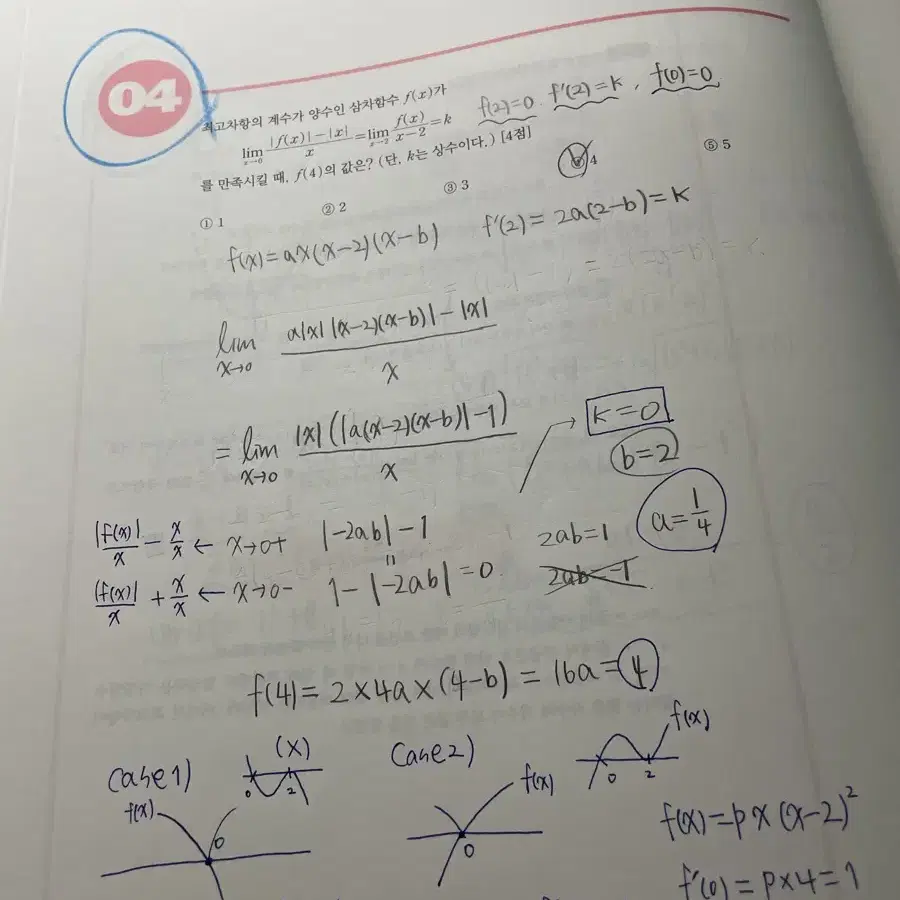 04
최고차항의 계수가 양수인 삼차함수 f(x)가
lim x→0 (|f(x)|-|x|)/x = lim x→2 f(x)/(x-2) = k
f(2)=0 f'(2)=k, f(0)=0
를 만족시킬 때, f(4)의 값은? (단, k는 상수이다.) [4점]
① 1 ② 2 ③ 3 4 ⑤ 5
f(x)=ax(x-2)(x-b) f'(2)=2a(2-b)=k
lim x→0 (a|x||(x-2)(x-b)|-|x|)/x
= lim x→0 |x|(|a(x-2)(x-b)|-1)/x
k=0
b=2
|f(x)|/x - x/x ← x→0+ |-2ab|-1
||
|f(x)|/x + x/x ← x→0- 1-|-2ab|=0
2ab=1 a=1/4
2ab=-1
f(4)=2×4a×(4-b)=16a=4
case1) (x) 0 2
f(x) 0
case2) f(x) 0 2
f(x) 0
f(x)=px(x-2)²
f'(0)=p×4=1